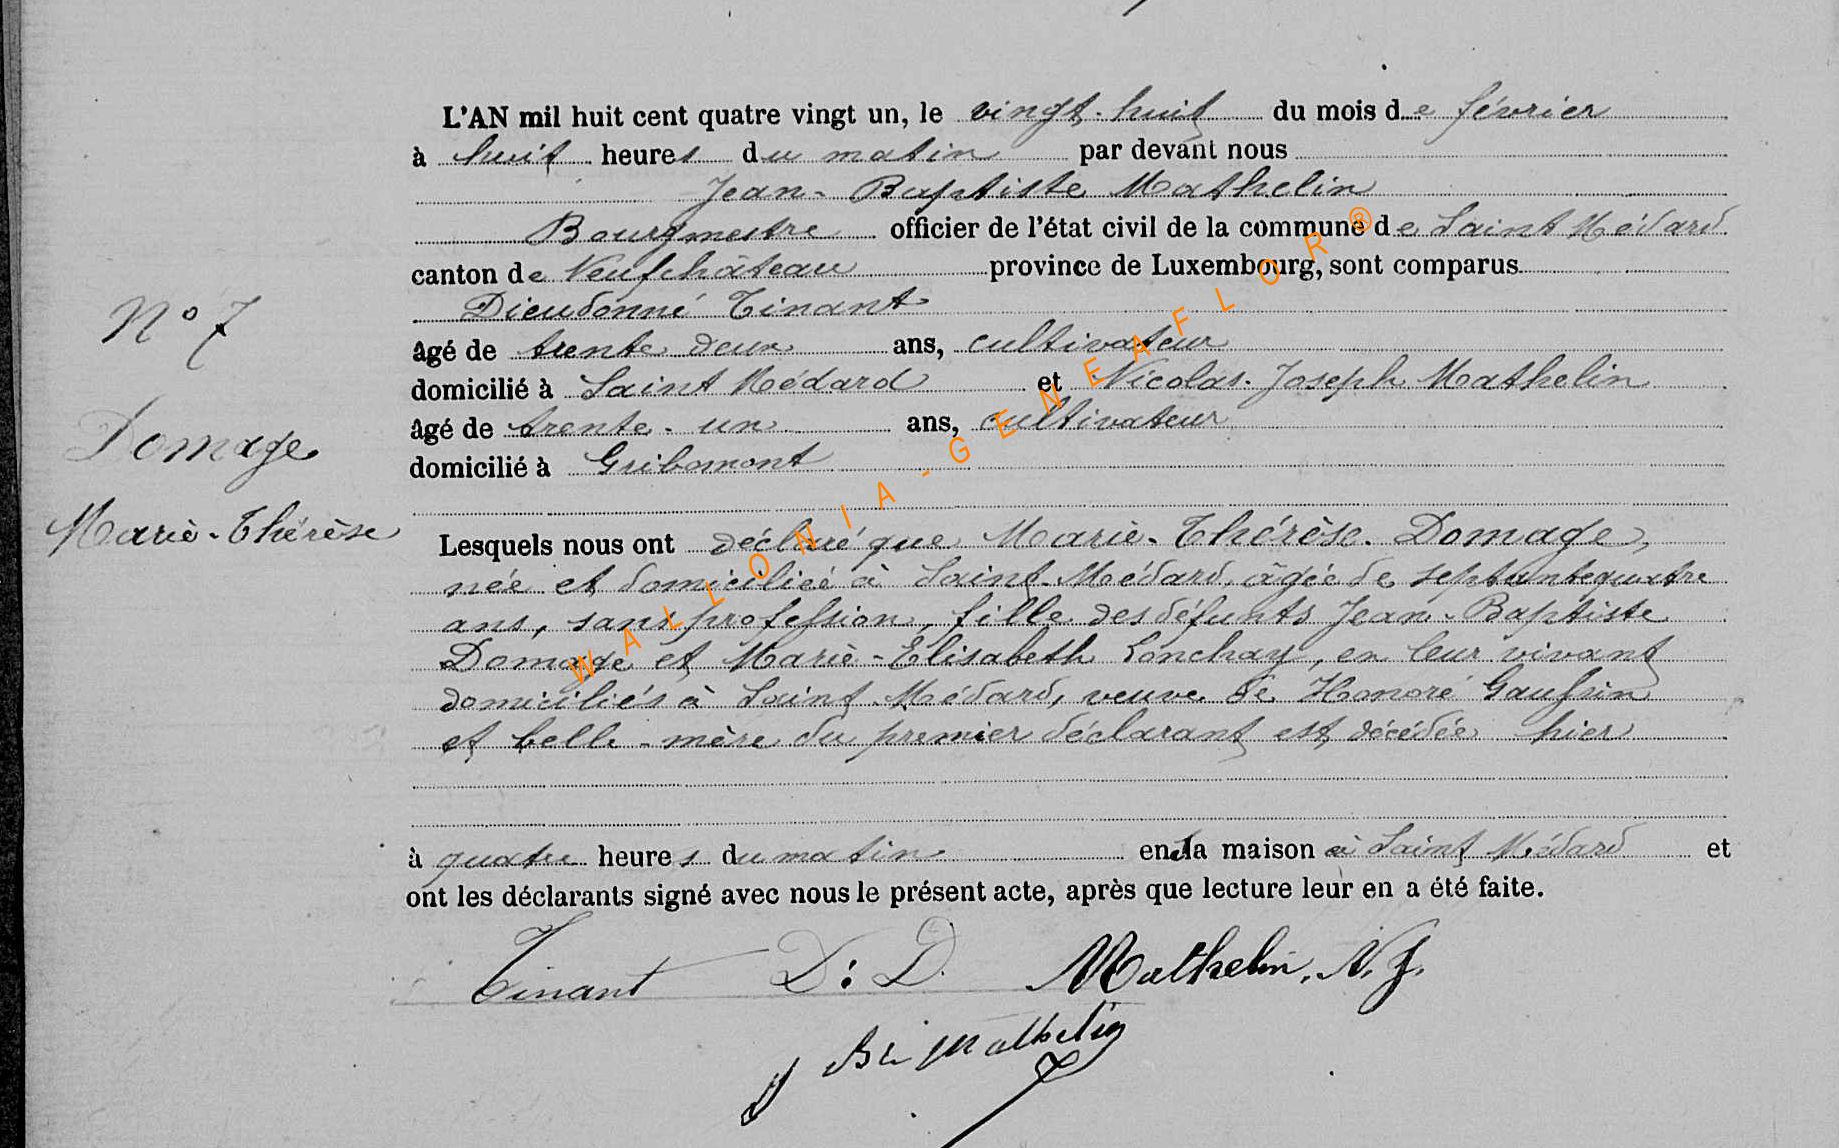 L'AN mil huit cent quatre vingt un, le vingt-huit du mois de février
à huit heures du matin par devant nous
Jean-Baptiste Mathelin
Bourgmestre officier de l'état civil de la commune de Saint Médard
canton de Neufchâteau province de Luxembourg, sont comparus
Dieudonné Tinant
N° 7
âgé de trente deux ans, cultivateur
domicilié à Saint Médard et Nicolas-Joseph Mathelin
âgé de trente-un ans, cultivateur
Domage
domicilié à Gribomont
Marie-Thérèse
Lesquels nous ont déclaré que Marie-Thérèse Domage,
née et domiciliée à Saint-Médard, âgée de septante quatre
ans, sans profession, fille des défunts Jean-Baptiste
Domage et Marie-Elisabeth Lonchay, en leur vivant
domiciliés à Saint-Médard, veuve de Honoré Gaussin
et belle-mère du premier déclarant est décédée hier
à quatre heures du matin en la maison à Saint Médard et
ont les déclarants signé avec nous le présent acte, après que lecture leur en a été faite.
Tinant D: D. Mathelin. N. J.
J Bte Mathelin
WALLONIA-GENEAFLOR®